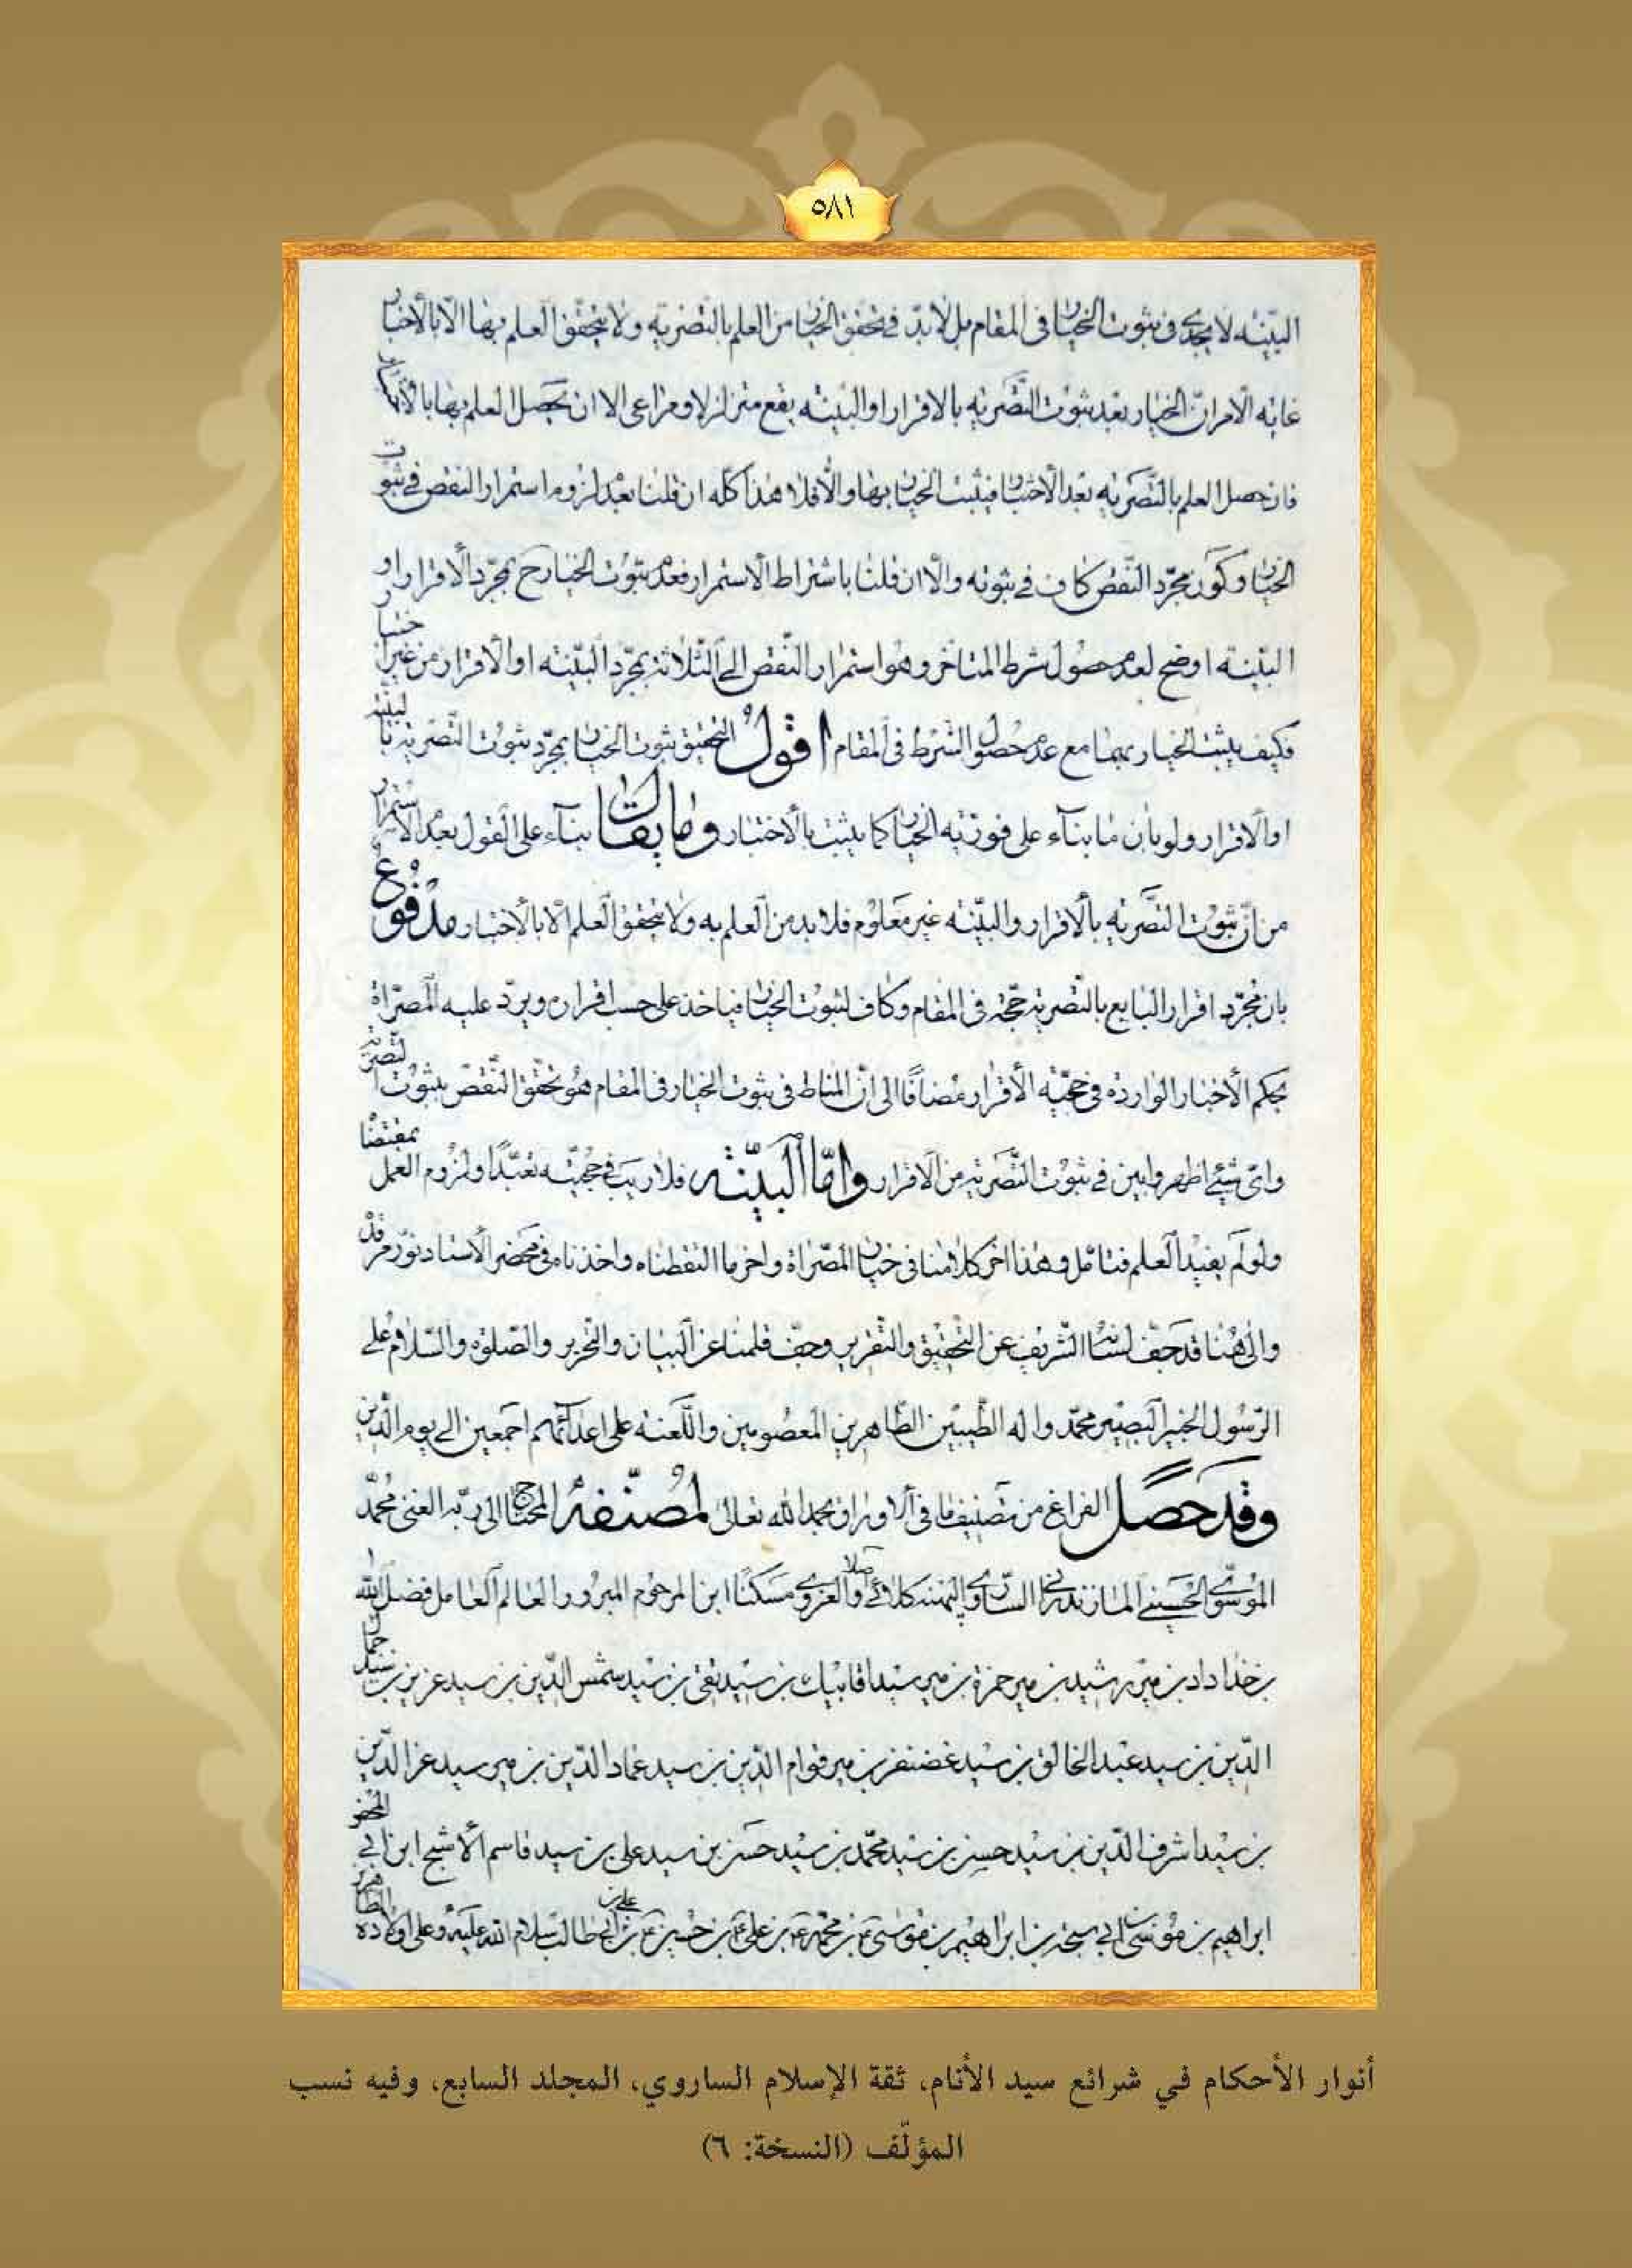 ٥٨١
البيّنه لا يجدى فى ثبوت الخيار فى المقام بل لا بدّ فى تحقق الخيار من العلم بالتصريه ولا يتحقق العلم بها الّا بالاختبار
غايه الامر انّ الخيار بعد ثبوت التصريه بالاقرار او البيّنه يقع متزلزلا ومراعى الا ان يحصل العلم بها
فان حصل العلم بالتصريه بعد الأختبار فيثبت الخيار بها والّا فلا هذا كلّه ان قلنا بعدم لزوم استمرار النقص فى ثبوت
الخيار وكون مجرّد النّقص كاف فى ثبوته والّا ان قلنا باشتراط الاستمرار فعدم ثبوت الخيار ح بمجرّد الاقرار او
البيّنه اوضح لعدم حصول شرط المتاخر وهو استمرار النّقص الى الثّلاثه بمجرّد البيّنه او الاقرار من غير اختبار
فكيف يثبت الخيار بهما مع عدم حصول الشرط فى المقام اقول التحقيق ثبوت الخيار بمجرّد ثبوت التّصريه بالبيّنه
او الاقرار ولو بان ما بناء على فوريّه الخيار كما يثبت بالاختبار وما يقال بناء على القول بعدم الاستمرار
من انّ ثبوت التصريه بالاقرار والبيّنه غير معلوم فلا بد من العلم به ولا يتحقق العلم الّا بالاختبار مدفوع
بان مجرّد اقرار البايع بالتصريه حجّه فى المقام وكاف لثبوت الخيار فياخذ على حسب اقراره ويردّ عليه المصرّاة
بحكم الأخبار الوارده فى حجيّه الأقرار مضافًا الى انّ المناط فى ثبوت الخيار فى المقام هو تحقّق النّقص بثبوت التصريه
واىّ شيئ اظهر وابين فى ثبوت التّصريه من الاقرار وامّا البيّنه فلا ريب فى حجيّته تعبّدًا ولزوم العمل بمقتضاه
ولو لم يفيد العلم فتامّل وهذا اخر كلامنا فى خيار المصّراة واخر ما التقطناه واخذناه فى محضر الأستاد نوّر مرقده
والى هنا قد جفّ لسننا الشّريف عن التّحقيق والتّقرير وجفّ قلمنا عن البيان والتحرير والصّلوة والسّلام على
الرّسول الخبير البصير محمّد واله الطّيبين الطّاهرين المعصومين واللّعنه على اعدائهم اجمعين الى يوم الدّين
وقد حصل الفراغ من تصنيف ما فى الاوراق بحمد الله تعالى لمصنّفه المحتاج الى ربّه الغنى محمّد
الموسوىّ الحسينى المازندرانى السّاروى كلائى اصلا والغروى مسكنًا ابن المرحوم المبرور العالم العامل فضل الله
بن خداداد بن مير رشيد بن مير حمزة بن مير سيد اقابيك بن سيّد تقى بن سيّد شمس الدّين بن سيد عزيز بن سيّد جمال
الدّين بن سيد عبد الخالق بن سيّد غضنفر بن مير قوام الدّين بن سيد عماد الدّين بن مير سيد عز الدّين
بن سيّد اشرف الدّين بن سيّد حسين بن سيّد محمّد بن سيّد حسن بن سيد على بن سيد قاسم الاشج ابن ابى
ابراهيم بن موسى ابى سبحه بن ابراهيم بن موسى بن محمّد بن على بن حسين بن على بن ابى طالب سلام الله عليه وعلى اولاده الطاهرين
أنوار الأحكام في شرائع سيد الأنام، ثقة الإسلام الساروي، المجلد السابع، وفيه نسب
المؤلّف (النسخة: ٦)